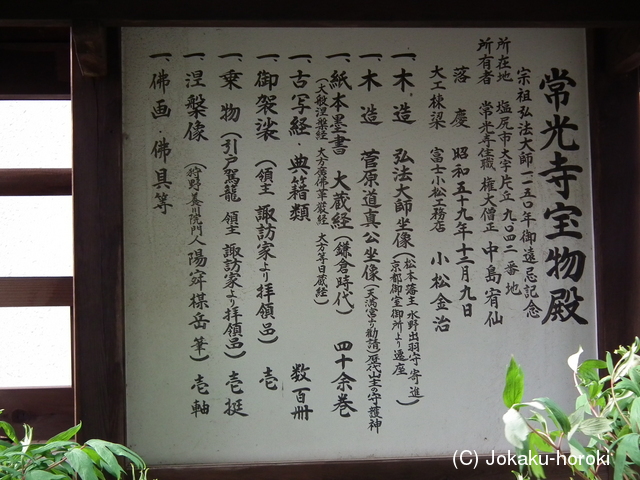 常光寺宝物殿
宗祖弘法大師一一五〇年御遠忌記念
所在地　塩尻市大字片丘九〇四二番地
所有者　常光寺住職　権大僧正　中島宥仙
落慶　昭和五十九年十二月九日
大工棟梁　富士小松工務店　小松金治
一、木造　弘法大師坐像（松本藩主水野出羽守寄進）
京都御室御所より遷座
一、木造　菅原道真公坐像（天満宮より勧請）歴代山主の守護神
一、紙本墨書　大蔵経（鎌倉時代）　四十余巻
（大般涅槃経　大方廣佛華厳経　大方等日蔵経）
一、古写経・典籍類　数百冊
一、御袈裟（領主　諏訪家より拝領品）　壱
一、乗物（引戸駕籠　領主　諏訪家より拝領品）　壱挺
一、涅槃像（狩野養川院門人　陽　岳筆）　壱軸
一、佛画・佛具等
(C) Jokaku-horoki